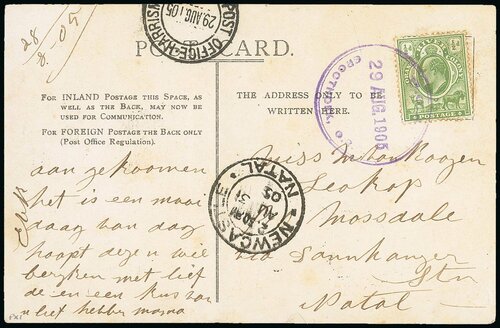 28/8-05
POST OFFICE-HARRISM
29 AUG.05
POST CARD.
For INLAND Postage this Space, as
well as the Back, may now be
used for Communication.
For FOREIGN Postage the Back only
(Post Office Regulation).
THE ADDRESS ONLY TO BE
WRITTEN HERE.
29 AUG.1905
POSTAGE
NEWCASTLE
NATAL
AU 31
05
aan gekoomen
het is een mooi
daag van dag
hoopt deze u wel
met lief
de en een kus van
u liet hebber mama
Miss
Leokop
Mossdale
via
Stn
Natal